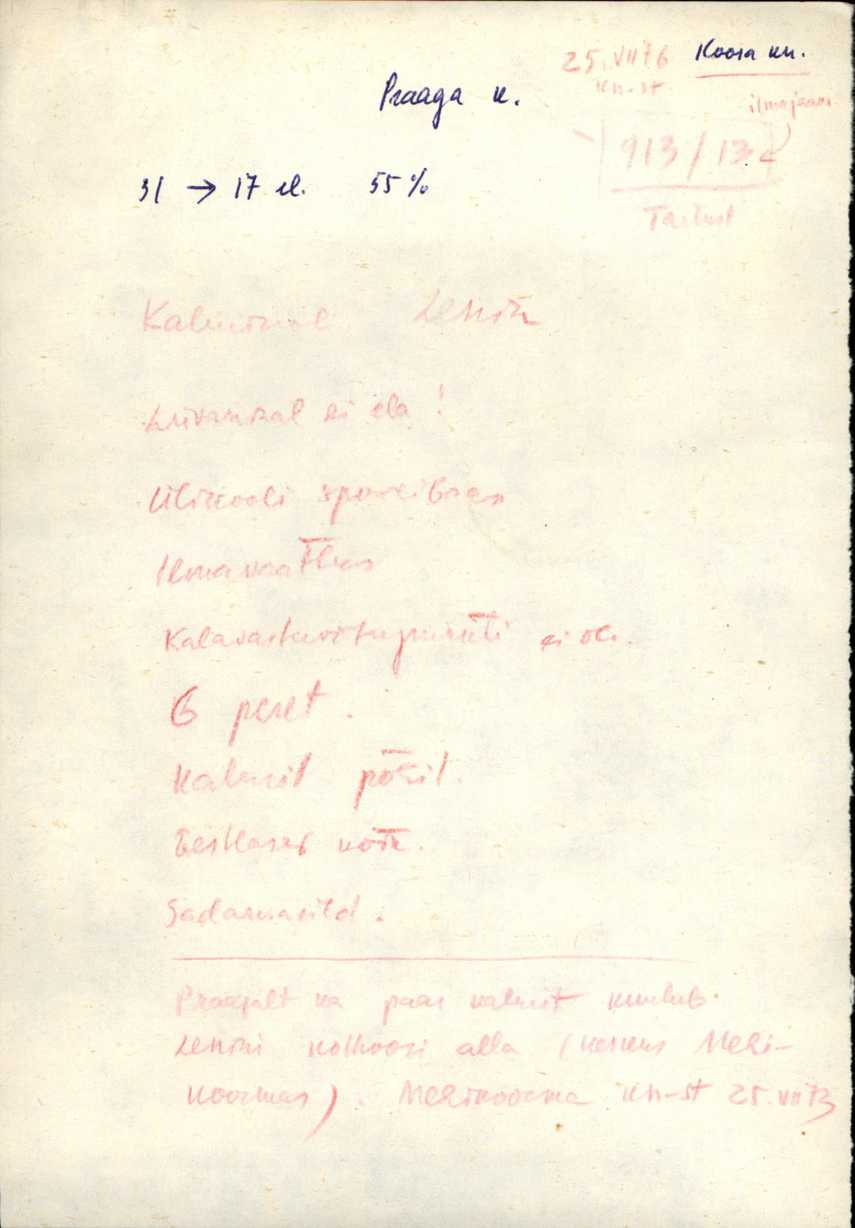 25.VII 76 Koosa kn.
kn-st
Praaga k.
ilmajaam
913/132
Tartust
31 → 17 el. 55%
Kalurid Lenini
ei ela!
Ülikooli spordibaas
Ilmavaatlus
Kalavastuvõtupunkti ei ole.
6 peret.
Kalurit põhil.
Eestlased kõik.
Sadamasild.
Praagalt ka paar kalurit kuulub
Lenini kolhoosi alla (keskus Meri-
koormas). Merikoorma kn-st 25.VII 73